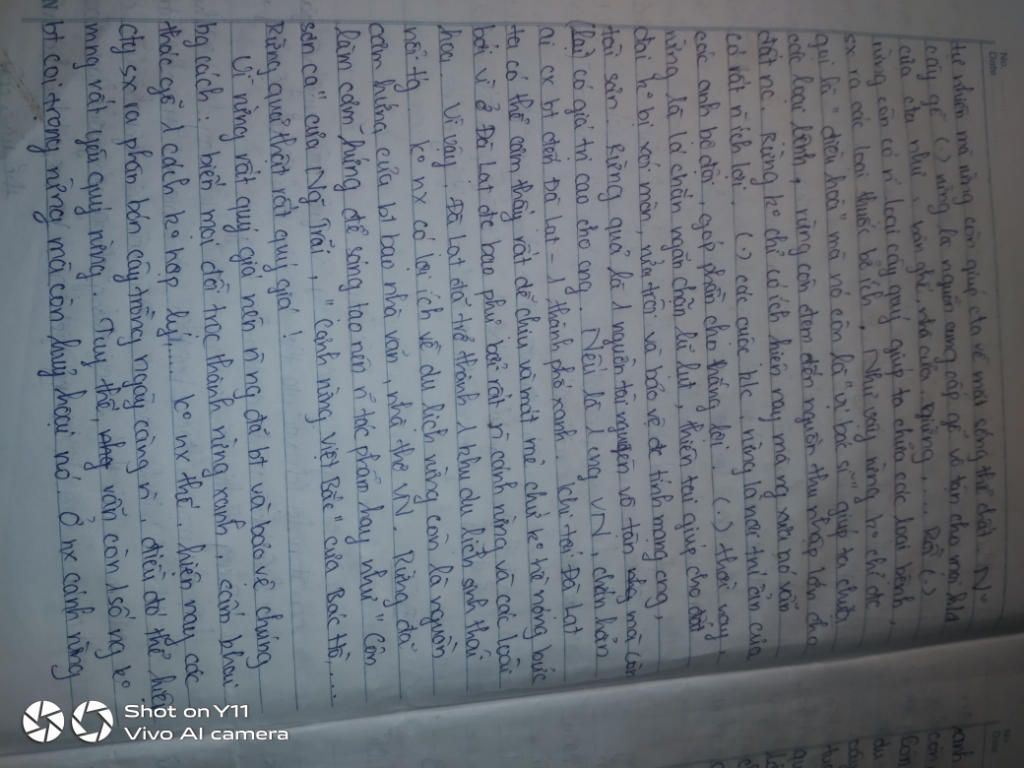 No.
Date
tự nhiên mà rừng còn giúp cta về mặt sống thứ đời. N
cây gỗ (.) rừng là nguồn cung cấp gỗ vô tận cho mọi
của cta như: bàn ghế, nhà cửa, xuồng,... Rồi (.)
rừng còn có n loại cây quý giúp ta chữa các loại bệnh,
sx ra các loại thuốc bổ ích. Như vậy rừng ko chỉ đc
gọi là "điều hoà" mà nó còn là "vị bác sĩ" giúp ta chữa
các loại bệnh, rừng còn đem đến nguồn thu nhập lớn cho
đất nc. Rừng ko chỉ có ích hiện nay mà ng xưa nó vẫn
có rất n ích lợi. (.) các cuộc k/c, rừng là nơi trú ẩn của
các anh bộ đội, góp phần cho thắng lợi. (.) thời nay,
rừng là lá chắn ngăn chặn lũ lụt, thiên tai giúp cho đất
đai ko bị xói mòn, rửa trôi và bảo vệ đc tính mạng cng,
tài sản. Rừng quả là 1 nguồn tài nguyên vô tận mà còn
(lại) có giá trị cao cho cng. Nếu là 1 cng VN, chắn hẳn
ai cx bt đến Đà Lạt - 1 thành phố xanh. Khi tới Đà Lạt
ta có thể cảm thấy rất dễ chịu và mát mẻ chứ ko hề nóng bức
bởi vì ở Đà Lạt đc bao phủ bởi rất n cánh rừng và các loài
hoa. Vì vậy, Đà Lạt đã trở thành 1 khu du lịch sinh thái
nổi tg
ko nx có lợi ích về du lịch rừng còn là nguồn
cảm hứng của bt bao nhà văn, nhà thơ VN. Rừng đã
làm cảm hứng để sáng tạo nên n tác phẩm hay như "Côn
sơn ca" của Ng Trãi, "Cảnh rừng Việt Bắc" của Bác Hồ,...
Rừng quả thật rất quý giá!
Vì rừng rất quý giá nên n ng đã bt và bảo vệ chúng
bg cách: biến mọi đồi trọc thành rừng xanh, cấm khai
thác gỗ 1 cách ko hợp lý,... ko nx thế, hiện nay các
cty sx ra phân bón cây trồng ngày càng n, điều đó thể hiện
mng rất yêu quý rừng. Tuy thế, vẫn còn 1 số ng ko
bt coi trọng rừng mà còn huỷ hoại nó. Ở nx cánh rừng